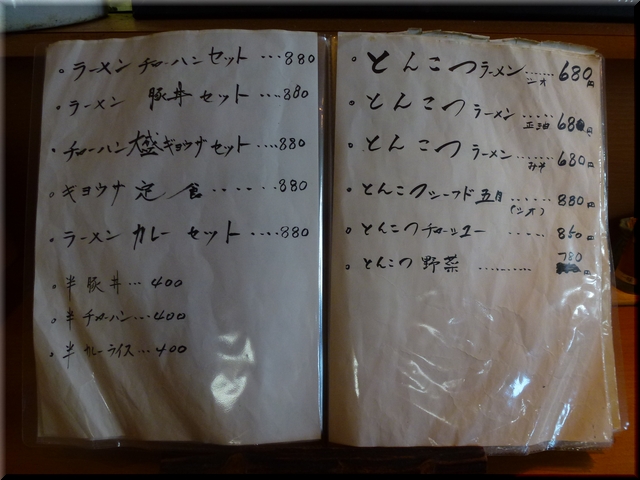 。ラーメン チャーハン セット ・・・880
。ラーメン 豚丼 セット ・・・880
。チャーハン大盛ギョウザセット・・・・880
。ギョウザ 定食・・・・・・880
。ラーメン カレー セット・・・・880
。半豚丼・・・400
。半チャーハン・・・400
。半カレーライス・・・400
。とんこつラーメン・・・・・・680円
シオ
。とんこつラーメン・・・・・680円
正油
。とんこつラーメン・・・・・680円
みそ
。とんこつシーフード五目・・・・・・880円
(シオ)
。とんこつチャーシュー ・・・・・850円
。とんこつ野菜 ・・・・・・・・・780円